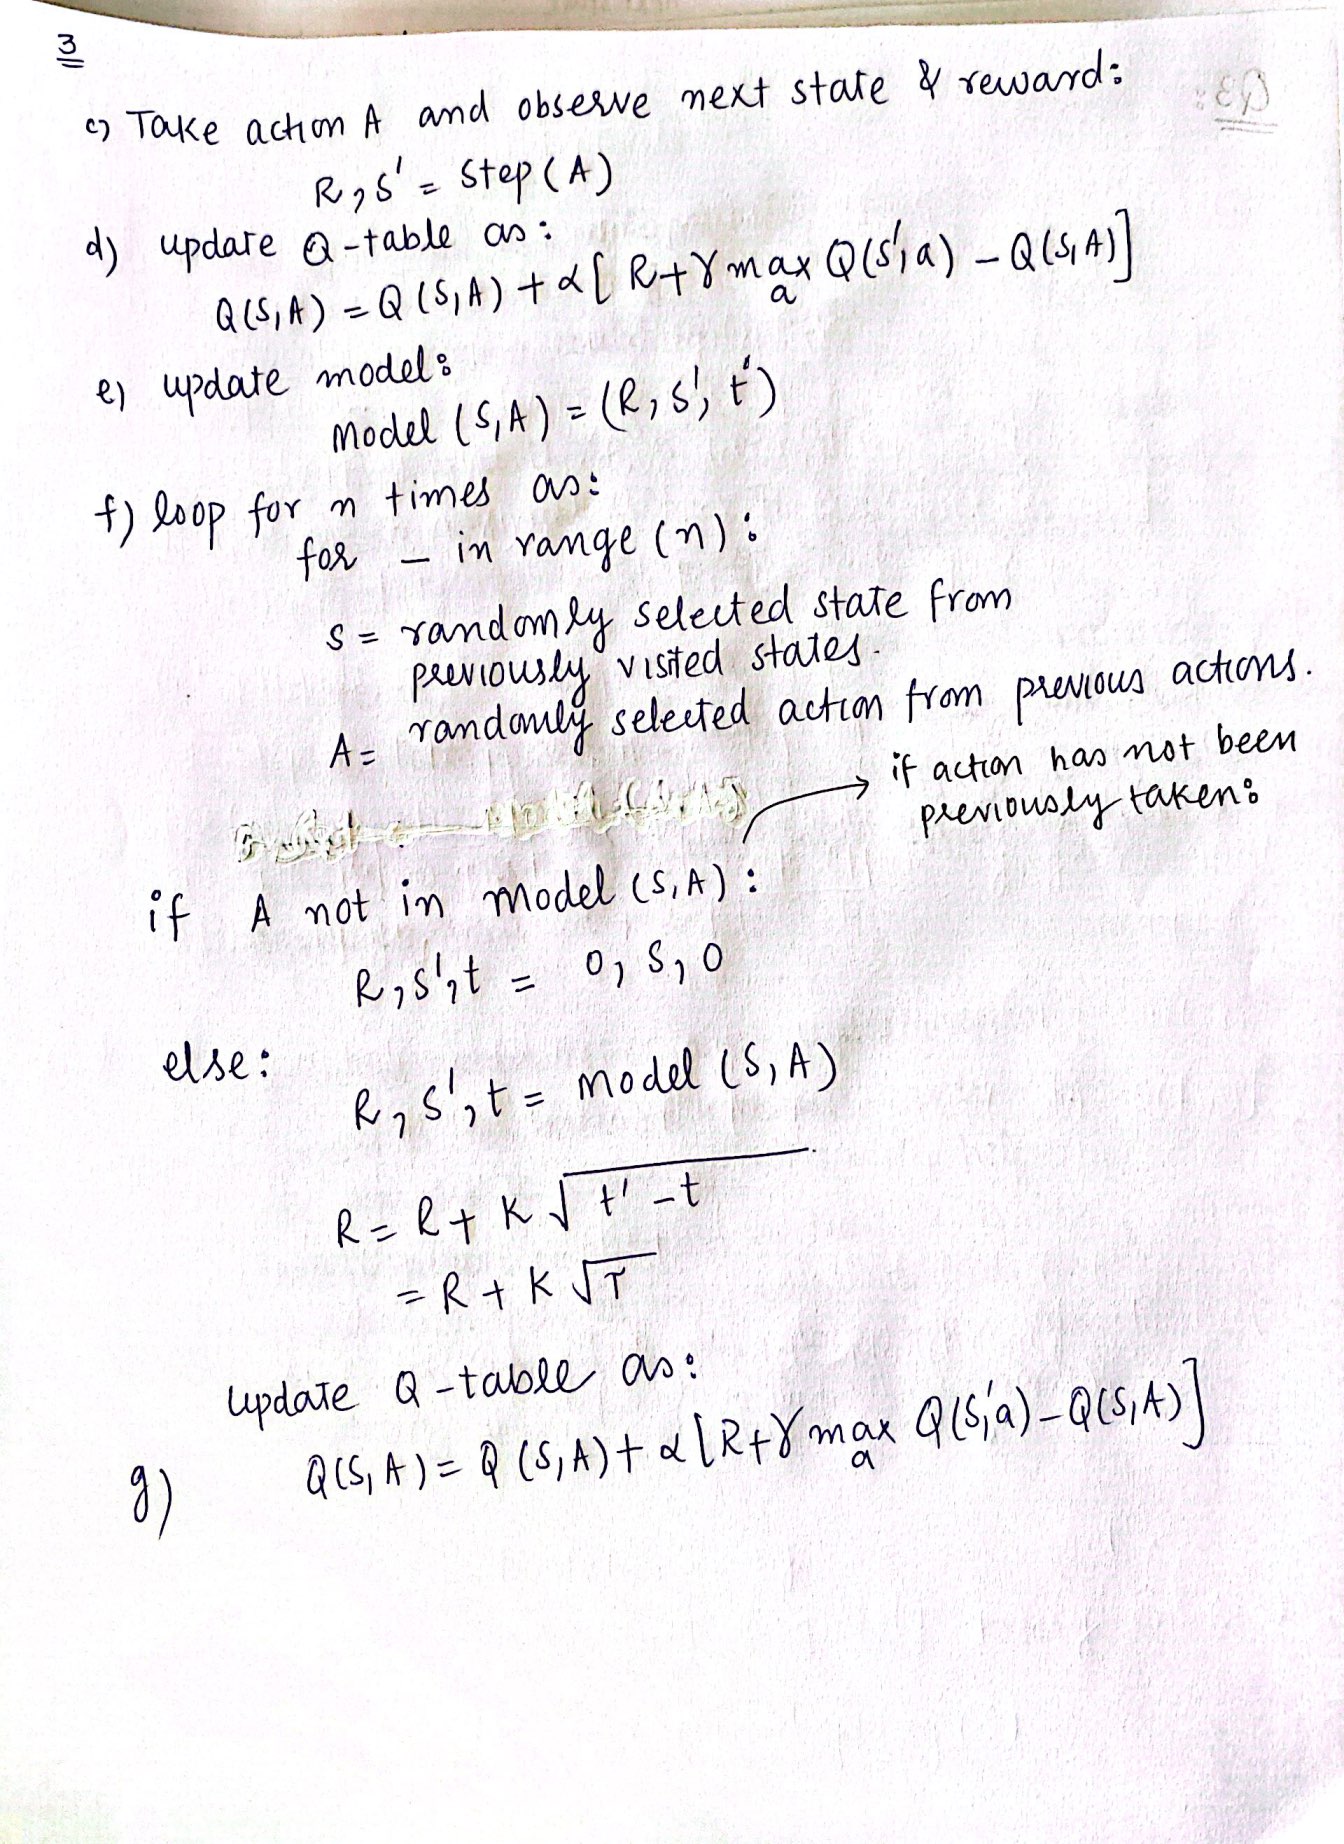 3
c) Take action A and observe next state & reward:
R, S' = Step (A)
d) update Q-table as:
Q(S,A) = Q(S,A) + α[R+γ max_a Q(S',a) - Q(S,A)]
e) update model:
Model (S,A) = (R, S', t')
f) loop for n times as:
for _ in range (n):
S = randomly selected state from
previously visited states.
A = randomly selected action from previous actions.
if action has not been
previously taken:
if A not in model (S,A):
R, S', t = 0, S, 0
else:
R, S', t = Model (S, A)
R = R + K √(t' - t)
= R + K √T
update Q-table as:
g) Q(S,A) = Q(S,A) + α[R+γ max_a Q(S',a) - Q(S,A)]